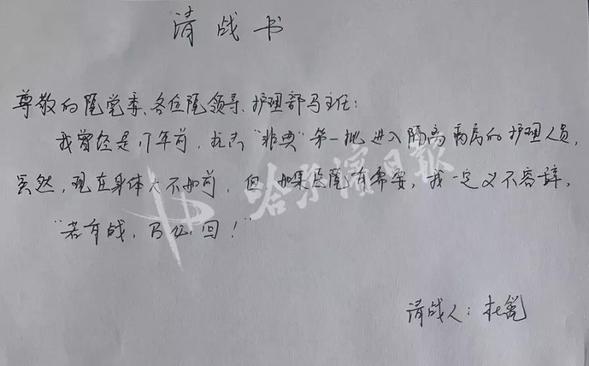 请战书
尊敬的院党委、各位院领导、护理部马主任:
我曾经是17年前,抗击"非典"第一批进入隔离病房的护理人员,
虽然,现在身体大不如前,但如果医院有需要,我一定义不容辞。
"若有战,召必回!"
请战人:杜
哈尔滨日报